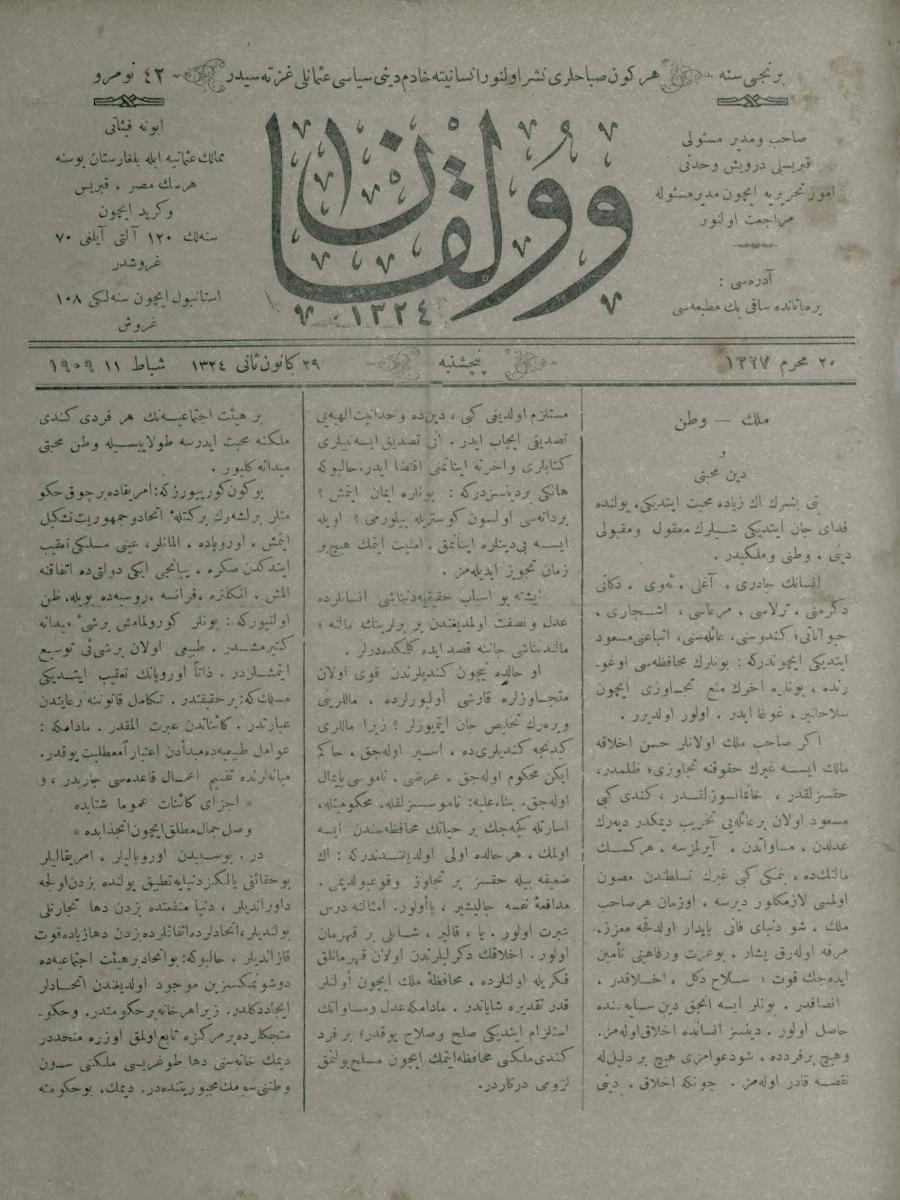 برنجی سنه
هر كون صباحلری نشر اولنور انسانیته خادم دینی سیاسی عثمانلی غزته سیدر
٤٢ نومرو
صاحب ومدیر مسئولی
قبریسلی درویش وحدتی
امور تحریریه ایچون مدیر مسئوله
مراجعت اولنور
آدره‌سی :
یره‌باتانده ساقی بك مطبعه‌سی
وولقان
١٣٢٤
ابونه فیئاتی
ممالك عثمانیه ایله بلغارستان بوسنه
هرسك مصر ، قبریس
وكرید ایچون
سنه‌لك ١٢٠ آلتی آیلغی ٧٠
غروشدر
استانبول ایچون سنه‌لكی ١٠٨
غروش
٢٠ محرم ١٣٢٧
پنچشنبه
٢٩ كانون ثانی ١٣٢٤
شباط ١١ ١٩٠٩
ملك — وطن
و
دین محبتی
بنی بشرك اك زیاده محبت ایتدیكی، یولنده
فدای جان ایتدیكی شیلرك معقول ومقبولی
دینی ، وطنی وملكیدر .
انسانك چادری ، آغلی ، ئه‌وی ، دكانی
دكرمنی ، ترلاسی ، مرعاسی ، اشجاری ،
حیواناتی؛ كندوسنی، عائله‌سنی، اتباعنی مسعود
ایتدیكی ایچوندركه : بونلرك محافظه‌سی اوغو-
رنده ، بونلره اخرك منع تجاوزی ایچون
سلاحلانیر ، غوغا ایدر . اولور اولدیرر .
اكر صاحب ملك اولانلر حسن اخلاقه
مالك ایسه غیرك حقوقنه تجاوزی؛ ظلمدر،
حقسزلقدر ، خانمانسوزلقدر ، كندی كبی
مسعود اولان برعائله‌یی تخریب دیمكدر دیه‌رك
عدلدن ، مساواتدن ، آیرلمزسه ، هركسك
مالنك‌ده ، كی كبی غیرك تسلطندن مصون
اولمسی لازمكلور دیرسه . اوزمان هرصاحب
ملك ، شو دنیای فانی پایدار اولدقجه معزز،
مرفه اوله‌رق یشار . بوعزت ورفاهیتی تأمین
ایده‌جك قوت ؛ سلاح دكل ، اخلاقدر ،
انصافدر . بونلر ایسه انجق دین سایه‌سنده
حاصل اولور . دینسز انسانده اخلاق اوله‌مز.
وهیچ برفردده ، شودعوامزی هیچ بر دلیل‌له
نقضه قادر اوله‌مز . چونكه اخلاق ، دینی
مستلزم اولدیغی كبی ، دین‌ده وحدانیت الهیه‌یی
تصدیقی ایجاب ایدر . آنی تصدیق ایسه نبیلری
كتابلری واخرته ایناتمنی اقتضا ایدر. حالبوكه
هانكی بردینسزدركه : بونلره ایمان ایتمش ؟
بردانه‌سی اولسون كوستریله بیلورمی ؟ اویله
ایسه بی‌دینلره ایناتمق، امنیت ایتمك هیچ‌بر
زمان تجویز ایدیله‌مز .
ایشته بو اسباب حقیقیه‌دنناشی انسانلرده
عدل ونصفت اولمدیغندن بر برلرینك مالنه ؛
مالندنناشی جاننه قصد ایده كلكده‌درلر .
او حالده نیچون كندیلرندن قوی اولان
متجاوزلره قارشی أولیورلرده ، ماللرینی
ویره‌رك تخلیص جان ایتمیورلر ؟ زیرا ماللری
كیدنجه كندیلری‌ده ، اسیر اوله‌جق ، حاكم
ایكن محكوم اوله‌جق ، عرضی ، ناموسی پایمال
اوله‌جق. بناءعلیه: ناموسسزلقله، محكومیتله،
اسارتله كچه‌جك بر حیاتك محافظه‌سندن ایسه
اولمك ، هر حالده اولی اولدیغندندركه : اك
ضعیفه بیله حقسز بر تجاوز وقوعبولدیمی.
مدافعهٔ نفسه چالیشیر ، یاأولور. امثالنه درس
عبرت اولور . یا ، قالیر ، شانلی بر قهرمان
اولور . اخلاقك دكرلیلرندن اولان قهرمانلق
فكریله اولنلرده . محافظهٔ ملك ایچون أولنلر
قدر تقدیره شایاندر . مادامكه عدل ومساواتك
استلزام ایتدیكی صلح وصلاح یوقدر؛ بر فرد
كندی ملكنی محافظه ایتمك ایچون مسلح بولنمق
لزومی دركاردر.
بر هیئت اجتماعیه‌نك هر فردی كندی
ملكنه محبت ایدرسه طولاییسیله وطن محبتی
میدانه كلیور .
بوكون كورییورزكه: امریقاده برچوق حكو
متلر برلشه‌رك بركتلهٔ اتحادو جمهوریت تشكیل
ایتمش ، اوروپاده ، المانلر، عینی مسلكی تعقیب
ایتدكدن صكره ، یبانجی ایكی دولتی‌ده اتفاقنه
المش . انكلتره ،فرانسه ،روسیه‌ده بویله. ظن
اولنیوركه : بونلر كورولمامش برشی ٔ میدانه
كتیرمشدر . طبیعی اولان برشی‌ ٔی توسیع
ایتمشلردر . ذاتاً اوروپانك تعقیب ایتدیكی
مسلك‌كه: برحقیقتدر . تكامل قانوننه رعایتدن
عبارتدر . كائناتدن عبرت المقدر . مادامكه :
عوامل طبیعیه‌ده مبدأدن اعتباراً معطلیت یوقدر.
میانه‌لرنده تقسیم اعمال قاعده‌سی جاریدر ، و
« اجزای كائنات عموما شتابده
وصل جمال مطلق ایچون انجذابده »
در . بوسببدن اوروپالیلر ، امریقالیلر
بوحقائقی یالكز دنیایه تطبیق یولنده بزدن اولجه
داوراندیلر ، دنیا منفعتده بزدن دها تجارتلی
بولندیلر، اتحادلرده اتفاقلرده بزدن دهازیاده قوت
قازاندیلر . حالبوكه: بواتحاد برهیئت اجتماعیه‌ده
دوشونمكسزین موجود اولدیغندن اتحادلر
ایجاد دكلدر. زیرا هرخانه برحكومتدر. وحكو-
متجكلرده برمركزه تابع اولمق اوزره متحددر
دیمك خانه‌سنی دها طوغریسی ملكنی سون
وطننی سومك مجبوریتنده‌در. دیمك، بوحكومته